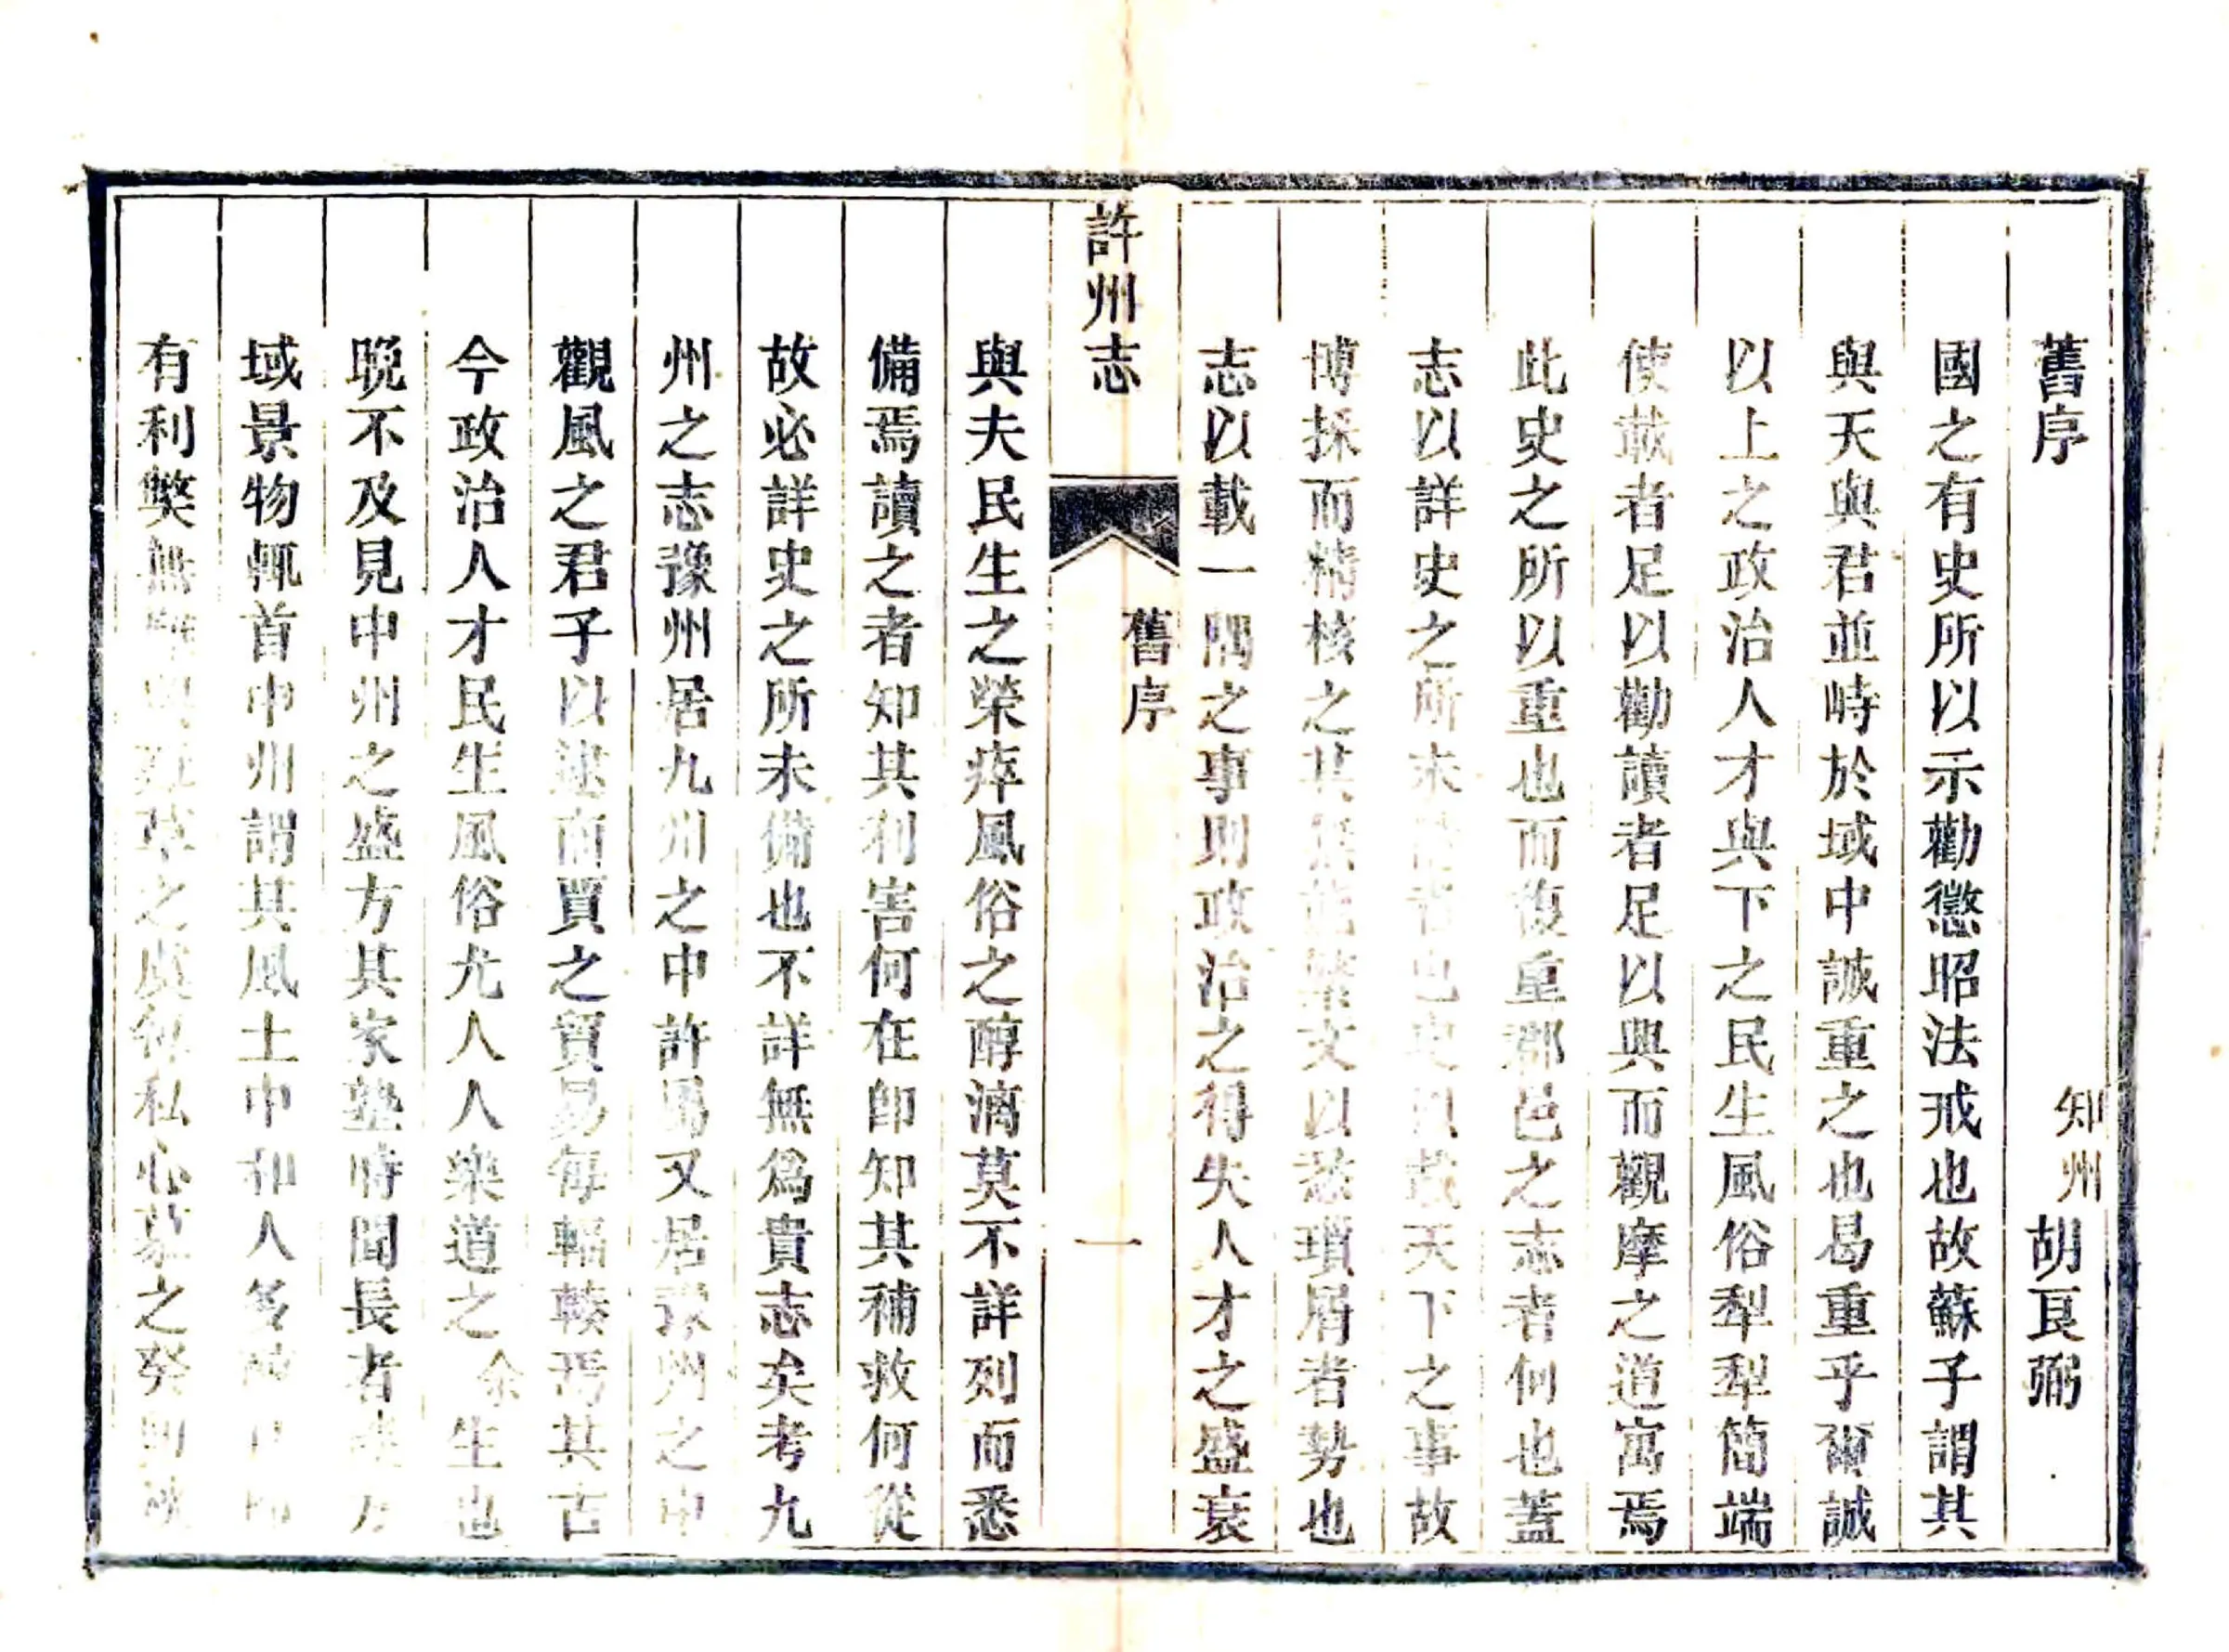 舊序
知州胡良弼
國之有史所以示勸懲昭法戒也故蘇子謂其
與天與君並峙於域中誠重之也曷重乎爾誠
以上之政治人才與下之民生風俗犁犁簡端
使載者足以勸讀者足以興而觀摩之道寓焉
此史之所以重也而復重郡邑之志者何也蓋
志以詳史之所未者也史以載天下之事故
博採而精核之其無能繁文以悉瑣屑者勢也
志以載一隅之事則政治之得失人才之盛衰
許州志
舊序
一
與夫民生之榮瘁風俗之醇漓莫不詳列而悉
備焉讀之者知其利害何在卽知其補救何從
故必詳史之所未備也不詳無爲貴志矣考九
州之志豫州居九州之中許爲又居豫州之中
觀風之君子以逮商賈之貿易每輻輳焉其古
今政治人才民生風俗尤人人樂道之余生也
晚不及見中州之盛方其家塾時聞長者
域景物輒首中州謂其風土中和人多
有利獘無之虞得私心慕之癸